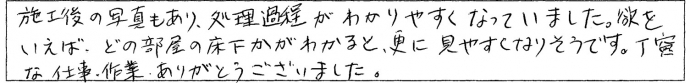 施工後の写真もあり、処理過程がわかりやすくなっていました。欲を
いえば、どの部屋の床下かがわかると、更に見やすくなりそうです。丁寧
な仕事・作業、ありがとうございました。